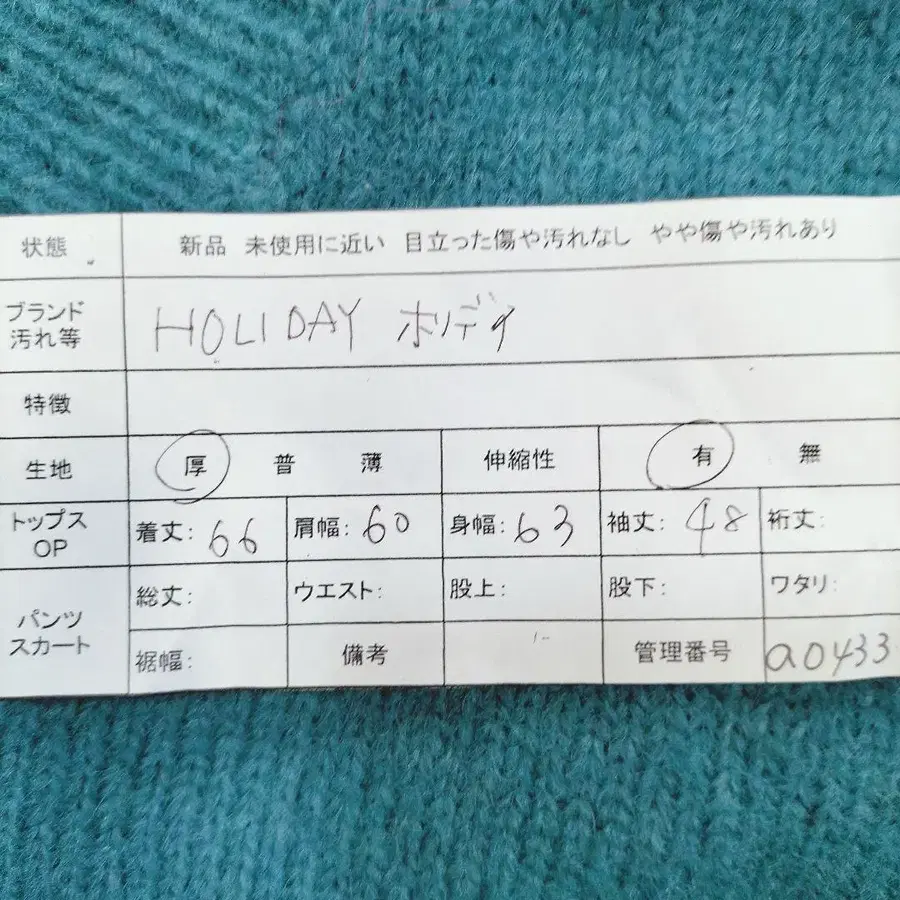 状態 新品 未使用に近い 目立った傷や汚れなし やや傷や汚れあり
ブランド
汚れ等
HOLIDAY ホリデイ
特徴
生地 厚 普 薄 伸縮性 有 無
トップス
OP
着丈: 66 肩幅: 60 身幅: 63 袖丈: 48 裄丈:
パンツ
スカート
総丈: ウエスト: 股上: 股下: ワタリ:
裾幅: 備考 管理番号 a0433